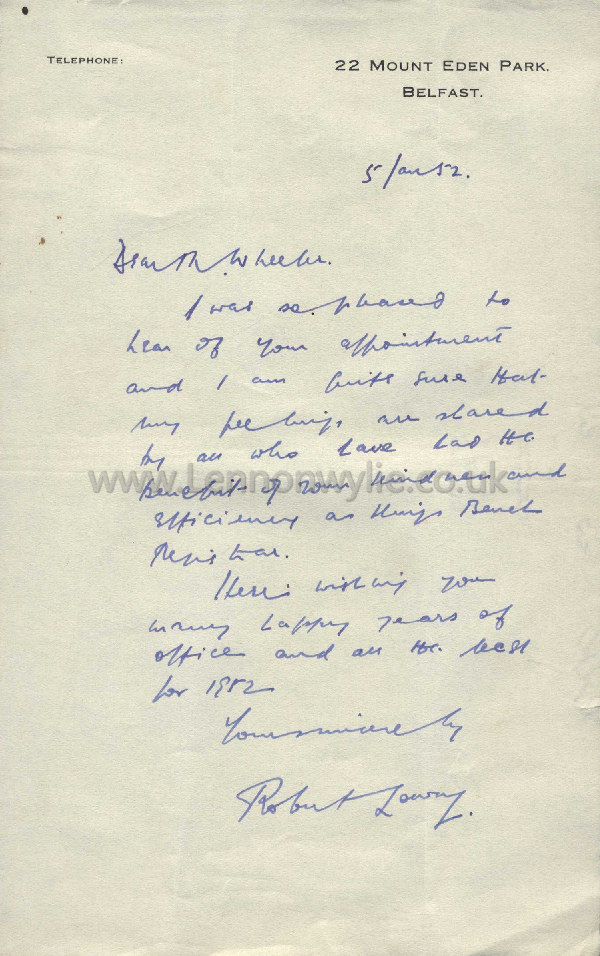 TELEPHONE:
22 MOUNT EDEN PARK.
BELFAST.
5 Jan 52.
Dear Mr. Wheeler.
I was so pleased to
hear of your appointment
and I am quite sure that
my feelings are shared
by all who have had the
benefit of your kindness and
efficiency as Kings Bench
Registrar.
Here's wishing you
many happy years of
office and all the best
for 1952
Yours sincerely
Robert Lowry.
www.Lennonwylie.co.uk